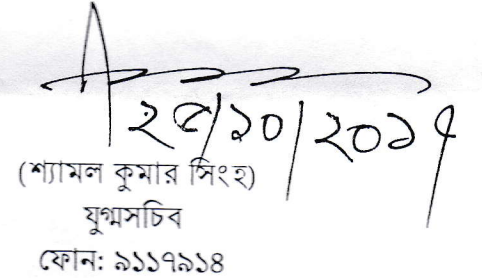 ২৫/১০/২০১৭
(শ্যামল কুমার সিংহ)
যুগ্মসচিব
ফোন: ৯১১৭৯১৪